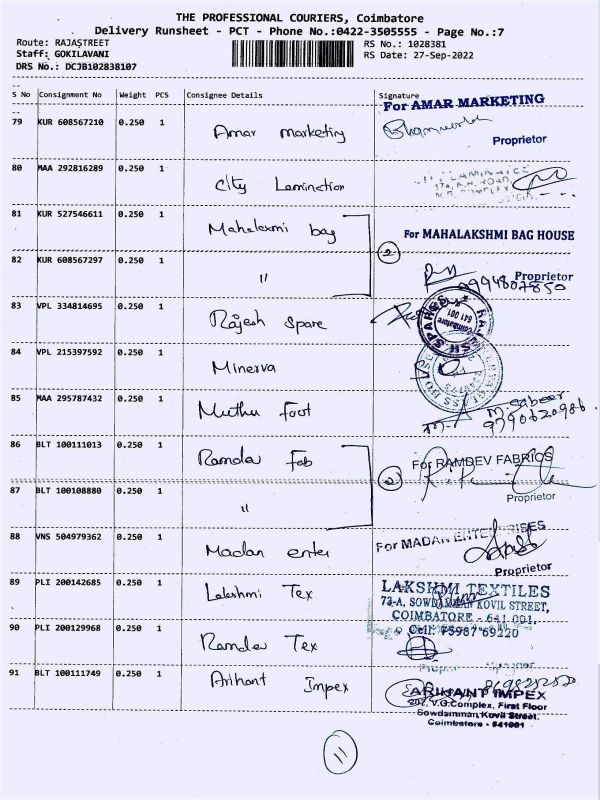 THE PROFESSIONAL COURIERS, Coimbatore
Delivery Runsheet - PCT - Phone No.:0422-3505555 - Page No.:7
Route: RAJASTREET
RS No.: 1028381
Staff: GOKILAVANI
RS Date: 27-Sep-2022
DRS No.: DCJB102838107
S No Consignment No Weight PCS Consignee Details Signature
79 KUR 608567210 0.250 1 Amar marketing
For AMAR MARKETING
Proprietor
80 MAA 292816289 0.250 1 City Laminction
CITY LAMINATE
81 KUR 527546611 0.250 1 Mahalaxmi bag
For MAHALAKSHMI BAG HOUSE
2
82 KUR 608567297 0.250 1 "
Proprietor
9994807850
83 VPL 334814695 0.250 1 Rajesh Spare
RAJESH SPARES
Coimbatore
641 001
84 VPL 215397592 0.250 1 Minerva
85 MAA 295787432 0.250 1 Muthu Foot
M. Sabeer
9790620986
86 BLT 100111013 0.250 1 Ramdev Fab
For RAMDEV FABRICS
2
87 BLT 100108880 0.250 1 "
Proprietor
88 VNS 504979362 0.250 1 Madan enter
For MADAN ENTERPRISES
Proprietor
89 PLI 200142685 0.250 1 Lakshmi Tex
LAKSHMI TEXTILES
73-A, SOWDAMMAN KOVIL STREET,
COIMBATORE - 641 001.
Cell: 75987 69220
90 PLI 200129968 0.250 1 Ramdev Tex
91 BLT 100111749 0.250 1 Arihant Impex
ARIHANT IMPEX
207, V.G.Complex, First Floor
Sowdamman Kovil Street,
Coimbatore - 641001
11